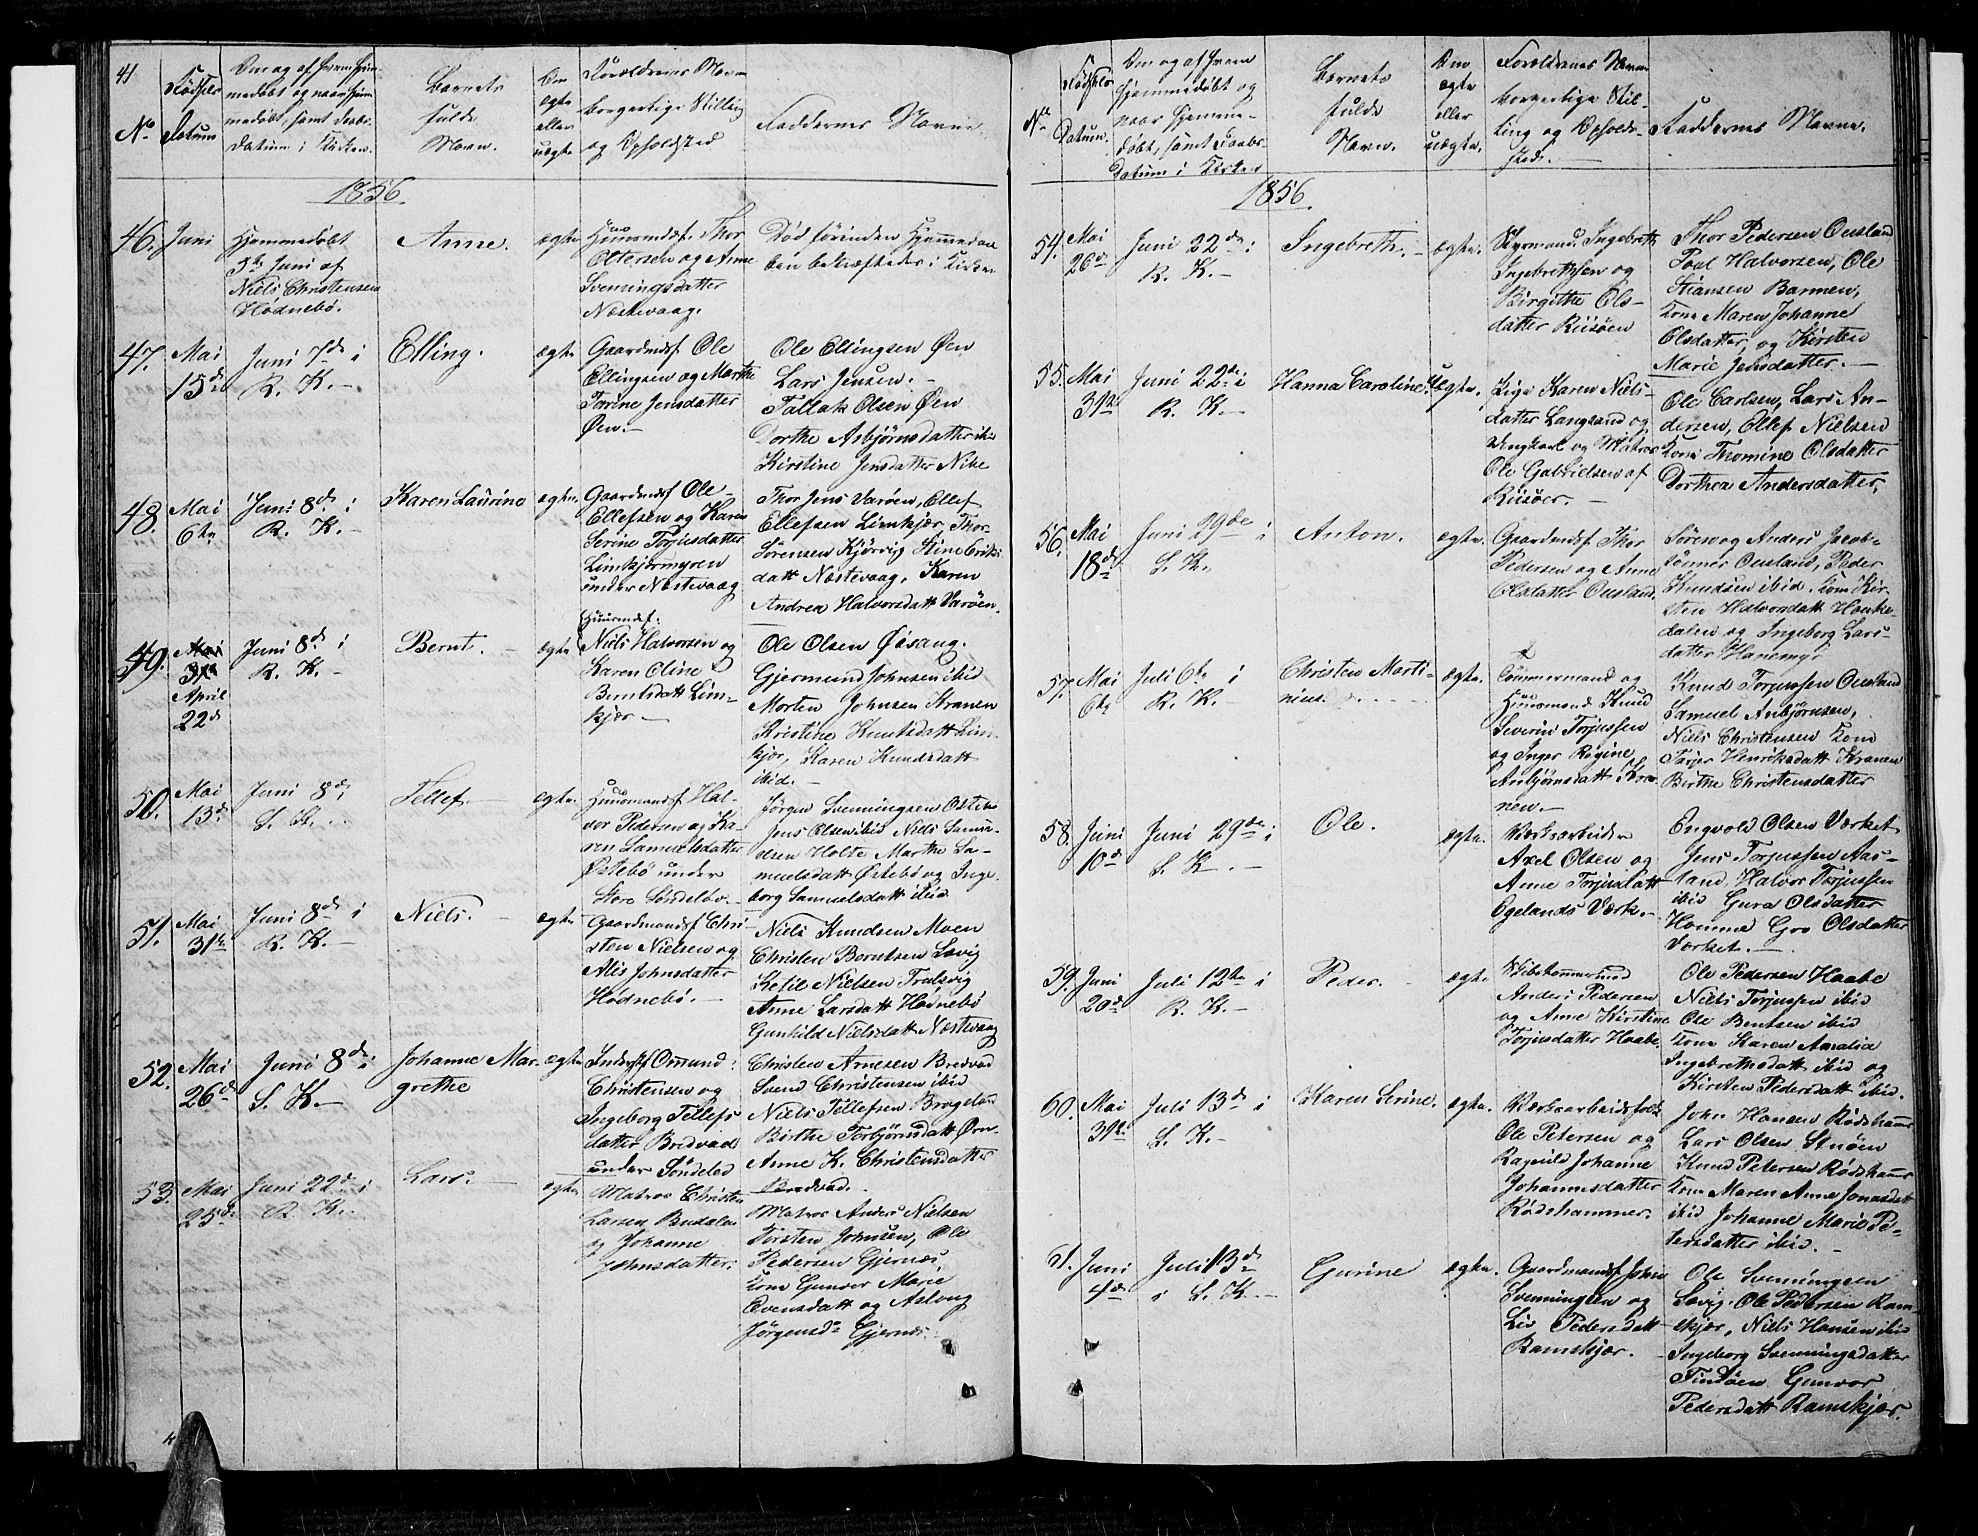 41
No
Fødsels
Datum
Om og af hvem hjem-
medøbt og naar hjem-
medøbt, samt Daabs-
Datum i Kirken.
Barnets
fulde
Navn.
Om
ægte
eller
uægte
Forældrenes Navn
borgerlige Stilling
og Opholdsted
Faddernes Navne
1856.
46. Juni
Hjemmedøbt
5te Juni af
Niels Christensen
Hødnebø.
Anne.
ægte
Huusmdsf. Thor
Oltersen og Anne
Svenningsdatter
Næstevaag.
Død förinden Hjemmedaa-
ben bekræftedes i Kirken
47. Mai
15de
Juni 7de i
R. K. —
Elling.
ægte
Gaardmdsf Ole
Ellingsen og Marthe
Torine Jensdatter
Øen. —
Ole Ellingsen Øen
Lars Jensen. —
Tallak Olsen Øen
Dorthe Asbjørnsdatter ibid
Kirstine Jensdatter Nibe
48. Mai
6te
Juni 8de i
R. K. —
Karen Laurine
ægte.
Gaardmdsf Ole
Ellefsen og Karen
Serine Torjusdatter
Limkjærmyren
under Næstevaag
Thor Jens Varøen, Ellef
Ellefsen Limkjær, Thor
Sørensen Kjørvig Stine Eriks
datt Næstevaag. Karen
Andrea Halvorsdatt Varøen.
49. Mai
31te
April
22de
Juni 8de i
R. K. —
Bernt. -
ægte
Huusmdsf.
Niels Halvorsen og
Karen Oline
Berntsdatt Lim-
kjær —
Ole Olsen Øysang.
Gjermund Johnsen ibid
Morten Johnsen Kranen
Kristine Knutsdatt Lim-
kjær, Karen Knudsdatt
ibid. —
50. Mai
13de
Juni 8de i
S. K. —
Tellef. —
ægte.
Huusmandsf Hal-
vor Pedersen og Ka-
ren Samuelsdatter
Østebø under
Store Søndeløv.
Jørgen Svenningsen Østebø
Jens Olsen ibid Niels Samu-
elsen Holte Marthe Sa-
muelsdatt Østebø og Inge-
borg Samuelsdatt ibid.
51. Mai
31te
Juni 8de i
R. K. —
Niels. —
ægte
Gaardmandsf Chri-
sten Nielsen og
Alis Johnsdatter
Hødnebø. —
Niels Knudsen Moen
Christen Berntsen Lavig
Ketil Nielsen Tralsvig
Anne Larsdatt Hødnebø
Gunhild Nielsdatt Næstevaag
52. Mai
26de
Juni 8de i
S. K. —
Johanne Mar-
grethe
ægte
Inderstf Omund
Christensen og
Ingeborg Tellefs-
datter Bredvad
under Søndeled
Christen Arnesen Bredvad
Svend Christensen ibid
Niels Tellefsen Brogeland
Birthe Torbjørnsdatt Ørn-
Anne K. Christensdatter
Bredvad.
53. Mai
25de
Juni 22de i
R. K. —
Lars. —
ægte
Matros Christen
Larsen Budalen
og Johanne
Johnsdatter.
Matros Anders Nielsen
Torsten Johnsen, Ole
Pedersen Gjernæs,
Kone Gunvor Marie
Evensdatt og Asloug
Jørgensd. Gjernæs.
No
Fødsels
Datum.
Om og af hvem
hjemmedøbt og
naar hjemme-
døbt, samt Daabs-
Datum i Kirken
Barnets
fulde
Navn.
Om
ægte
eller
uægte.
Forældrenes Navn
borgerlige Stil-
ling og Opholds-
sted. —
Faddernes Navne.
1856.
54. Mai
26de
Juni 22de i
R. K. —
Ingebreth. -
ægte.
Styrmand Ingebreth
Ingebrethsen og
Birgitte Ols-
datter Riisøen
Thor Pedersen Ousland
Poal Halvorsen, Ole
Stiansen Barmen,
Kone Maren Johanne
Olsdatter, og Kirsten
Marie Jensdatter. —
55. Mai
31te
Juni 22de i
R. K. —
Hanna Caroline.
Uægte.
Pige Karen Niels-
datter Langsand og
Ungkarl og Matros
Ole Gabrielsen af
Riisøer. —
Ole Carlsen, Lars An-
dersen, Ellef Nielsen
Kone Thomine Olsdatter
Dorthea Andersdatter,
56. Mai
18de
Juni 29de i
S. K.
Anton.
ægte.
Gaardmdsf Thor
Pedersen og Anne
Olsdatter Ousland.
Søren og Anders Jacob-
sønner Ousland, Peder
Knudsen ibid. Kone Kir-
sten Halvorsdatt Houke-
dalen og Ingeborg Lars-
datter Hanemyr
57. Mai
6te
Juli 6te i
R. K. —
Christen Marti-
nius.
ægte.
Tømmermand og
Huusmand Knud
Severin Torjussen
og Inger Regine
Anbjørnsdatt Kra-
nen. —
Knud Torjussen Ousland
Samuel Anbjørnsen,
Niels Christensen Kone
Tarjer Henriksdatt Kranen
Birthe Christensdatter
58. Juni
10de
Juni 29de i
S. K. —
Ole.
ægte.
Værksarbeider
Axel Olsen og
Anne Torjusdatt
Egelands Værk. —
Engvold Olsen Værket
Jens Torjussen Aas-
land, Halvor Torjussen
ibid Guro Olsdatter
Homme Gro Olsdatter
Værket. —
59. Juni
20de
Juli 12te i
R. K. —
Peder. —
ægte
Skibstømmermand
Anders Pedersen
og Anne Kirstine
Torjusdatter Haabe
Ole Pedersen Haabe
Niels Torjussen ibid
Ole Bentsen ibid
Kone Karen Amalia
Ingebrethsdatt ibid og
Kirsten Pedersdatt ibid.
60. Mai
31te
Juli 13de i
S. K. —
Karen Serine.
ægte.
Værksarbeidsfolk
Ole Petersen og
Ragnild Johanne
Johannesdatter
Rødshammer.
John Hansen Rødshammer
Lars Olsen Stuøen
Knud Petersen Rødshammer
Kone Maren Anne Jonasdatt
ibid Johanne Marie Pe-
tersdatter ibid. —
61. Juni
4de
Juli 13de
i S. K. —
Gurine
ægte.
Gaardmandsf John
Svenningsen og
Liv Pedersdatt
Ramskjær.
Ole Svenningsen
Savig. Ole Pedersen Ram-
skjær, Niels Hansen ibid
Ingeborg Svenningsdatter
Tindøen Gunvor
Pedersdatt Ramskjær.